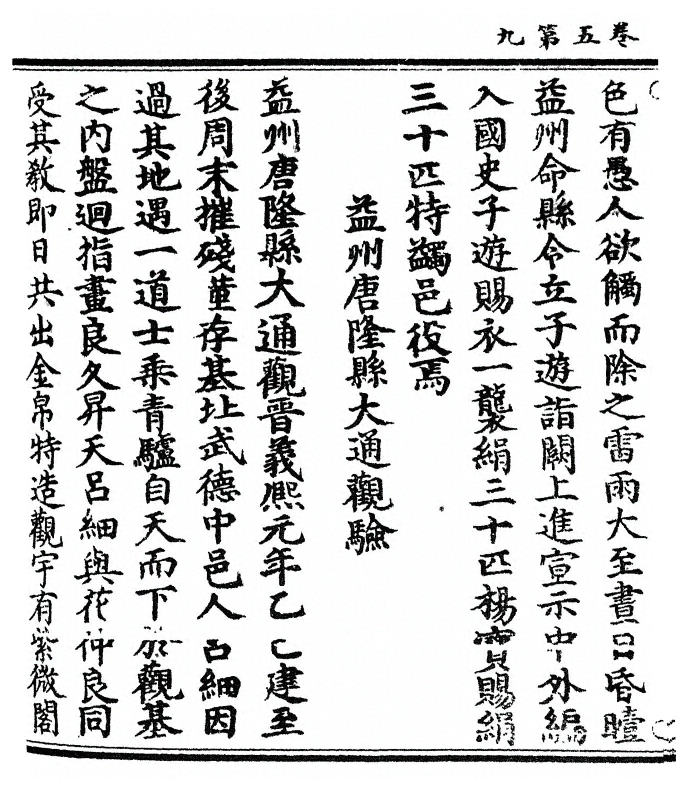 卷五第九
色有愚人欲觸而除之雷雨大至晝日昏曀
益州命縣令立子遊詣闕上進宣示中外編
入國史子遊賜衣一襲絹三十匹楊寶賜絹
三十匹特蠲邑役焉
益州唐隆縣大通觀驗
益州唐隆縣大通觀晉義熙元年乙巳建至
後周末摧殘蓳存基址武德中邑人呂細因
過其地遇一道士乘青驢自天而下於觀基
之内盤迴指畫良久昇天呂細與花仲良同
受其敎即日共出金帛特造觀宇有紫微閣